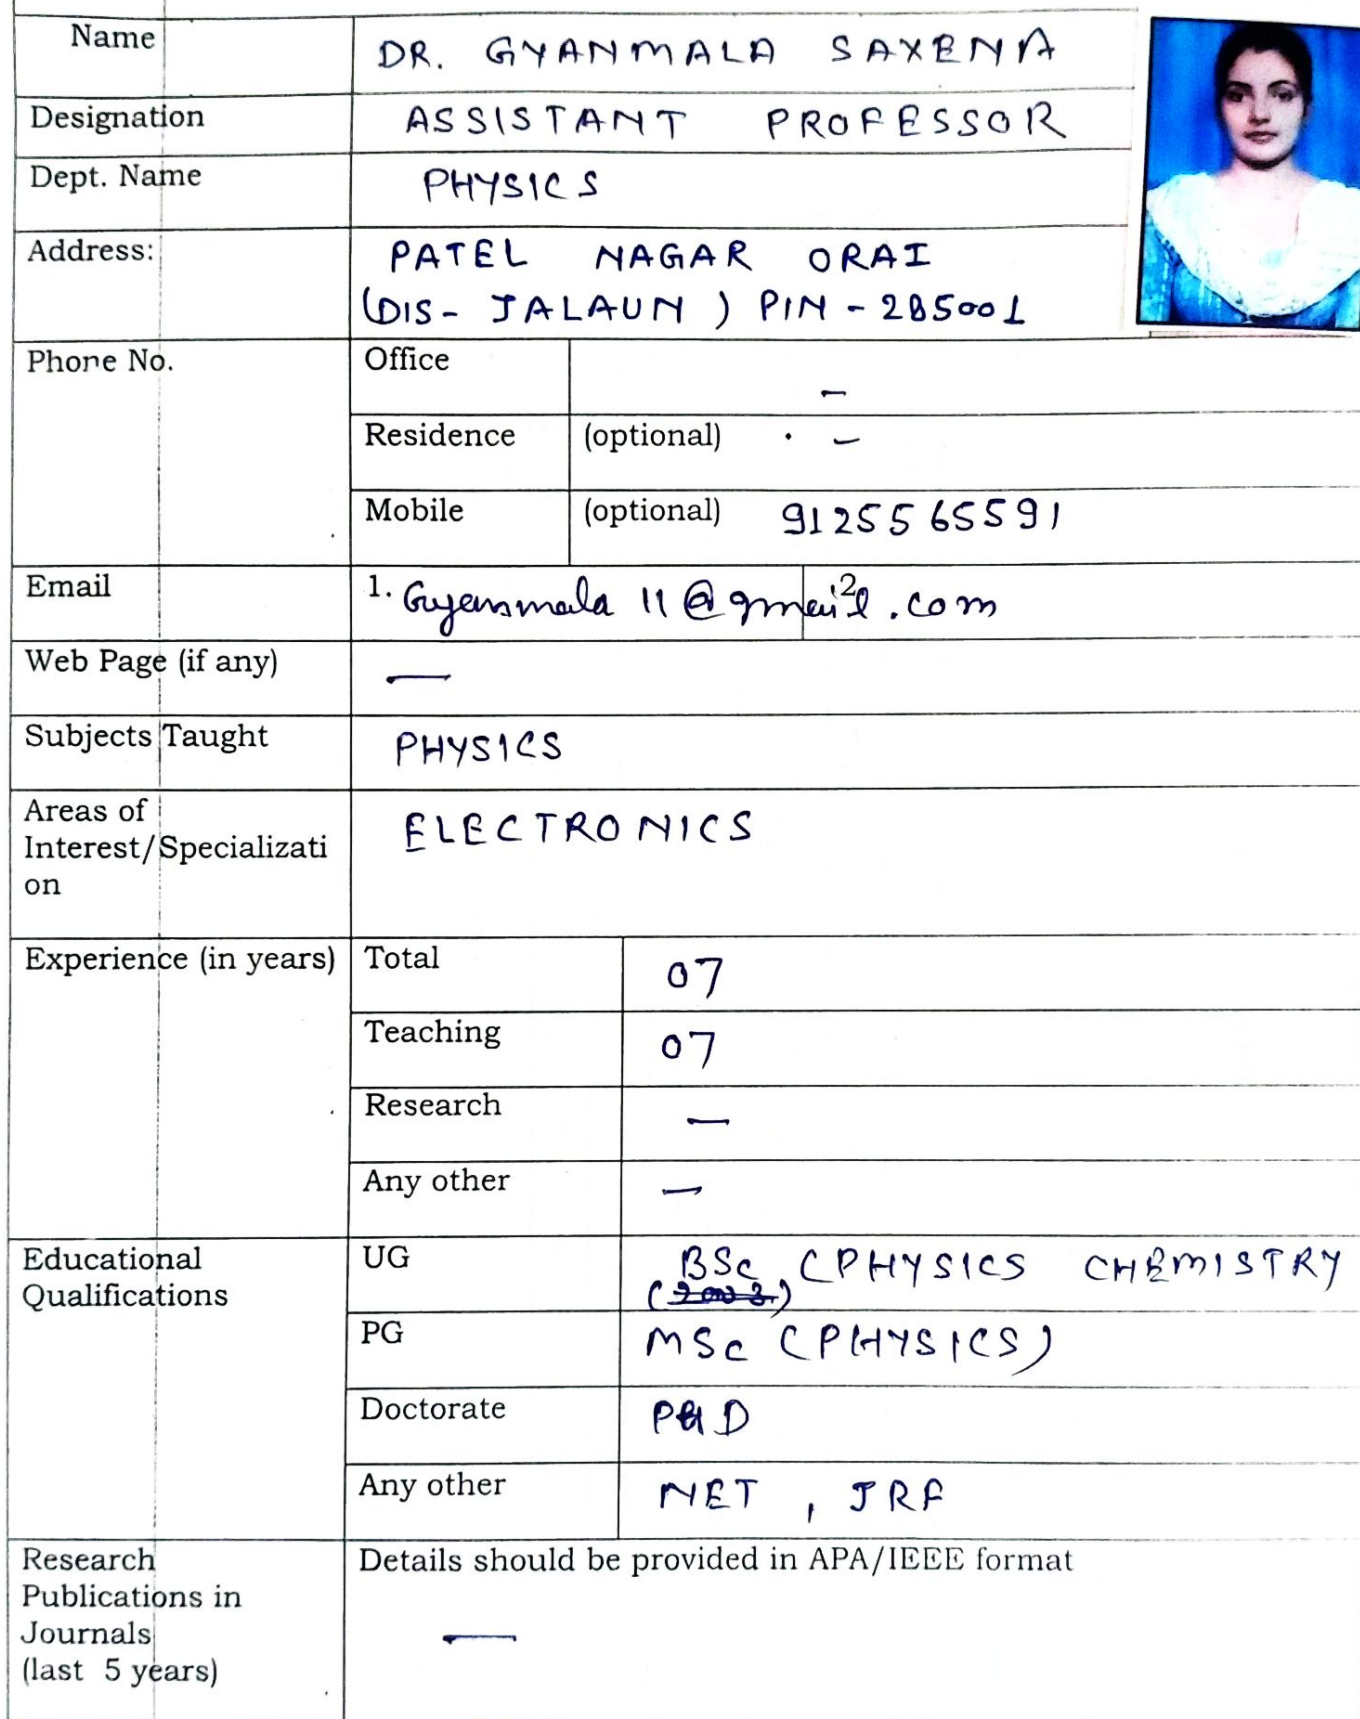 Name DR. GYANMALA SAXENA
Designation ASSISTANT PROFESSOR
Dept. Name PHYSICS
Address: PATEL NAGAR ORAI
(DIS- JALAUN ) PIN - 285001
Phone No. Office -
Residence (optional) -
Mobile (optional) 9125565591
Email 1. Gyanmala 11@gmail.com 2
Web Page (if any) —
Subjects Taught PHYSICS
Areas of
Interest/Specializati
on
ELECTRONICS
Experience (in years) Total 07
Teaching 07
Research —
Any other —
Educational
Qualifications
UG BSc (PHYSICS CHEMISTRY
PG MSc (PHYSICS)
Doctorate PHD
Any other NET , JRF
Research
Publications in
Journals
(last 5 years)
Details should be provided in APA/IEEE format
—